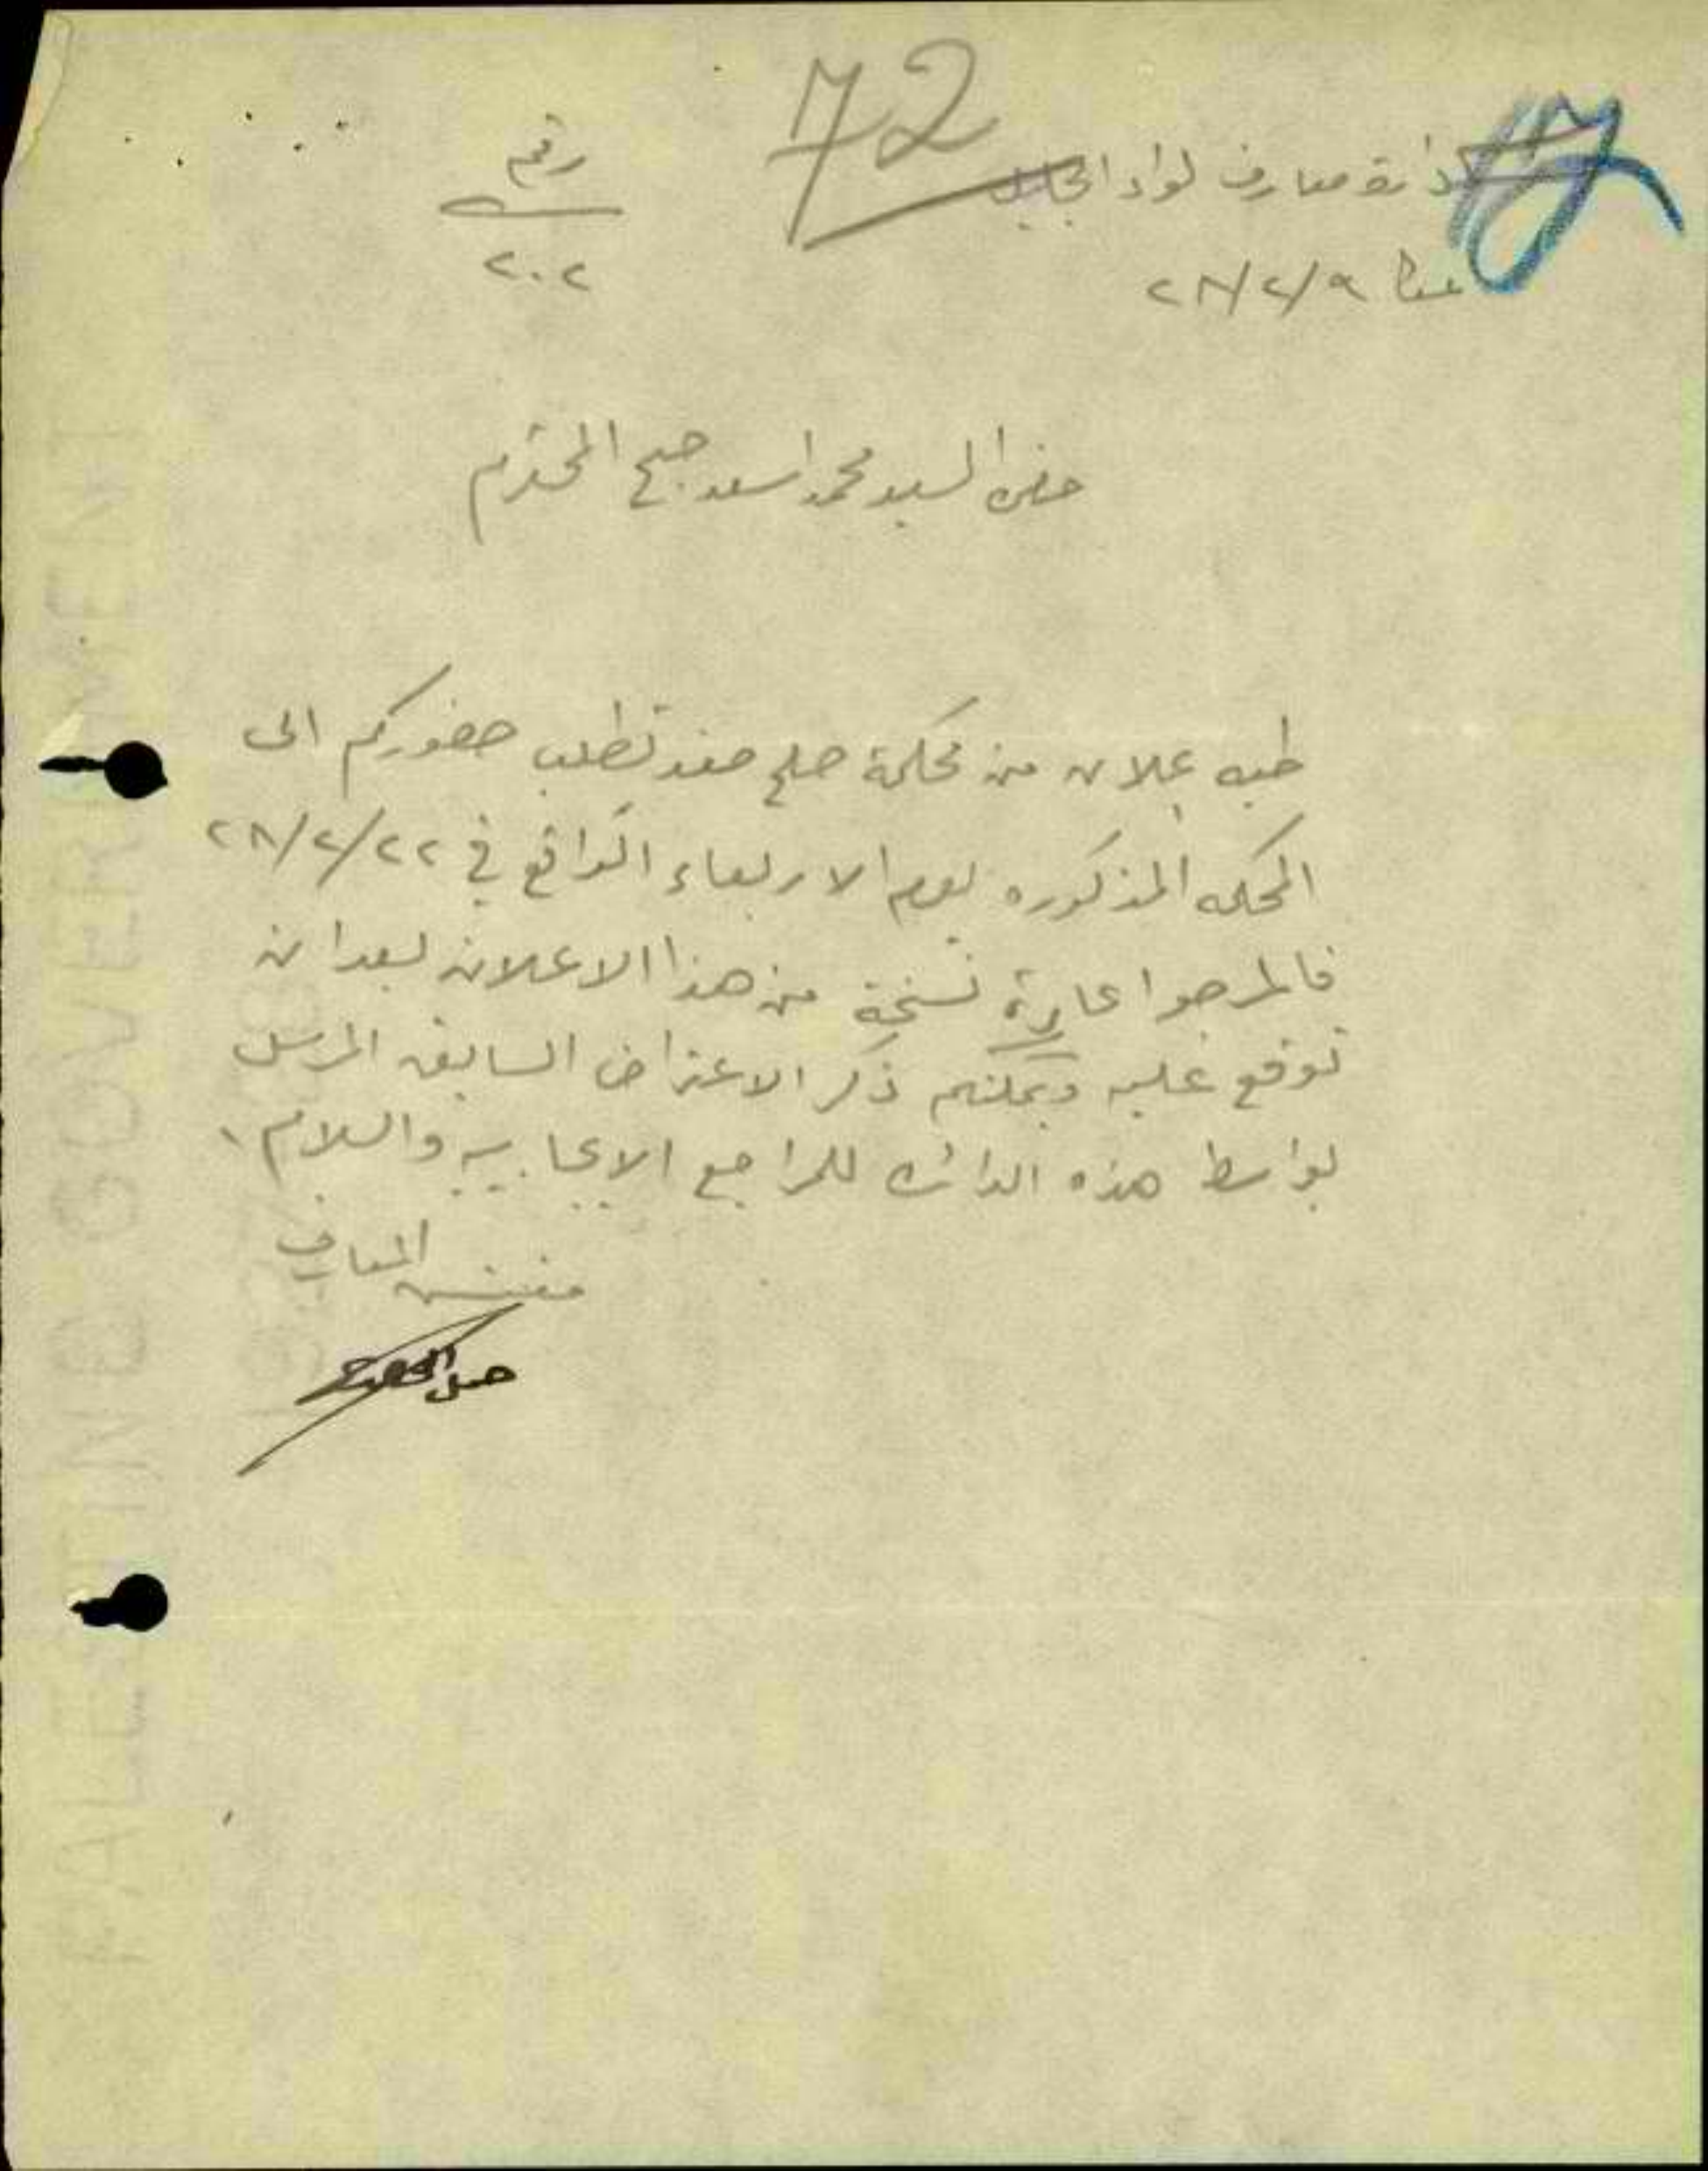 72
دائرة معارف لواء الجليل
رقم
٢٠٢
عكا ٢٨/٢/٩
حضرة السيد محمد اسعد صبح المحترم
طيه علان من محكمة صلح صفد تطلب حضوركم الى
المحكمه المذكوره يوم الاربعاء الواقع في ٢٨/٢/٢٢
فالمرجوا عادة نسخة من هذا الاعلان بعد ان
توقع عليه ويمكنكم ذكر الاعتراض السابق المرسل
بواسطة هذه الدائرة للمراجع الايجابيه والسلام
مفتش المعارف
PALESTINE GOVERNMENT